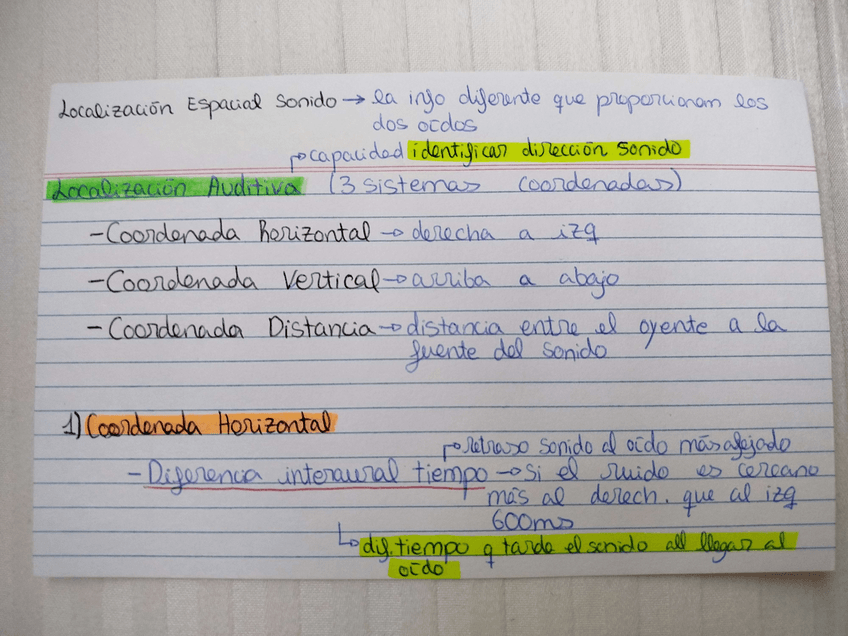 Localización Espacial Sonido → la info diferente que proporcionan los
dos oídos
→ capacidad identificar dirección sonido
Localización Auditiva (3 sistemas coordenadas)
- Coordenada Horizontal → derecha a izq
- Coordenada Vertical → arriba a abajo
- Coordenada Distancia → distancia entre el oyente a la
fuente del sonido
1) Coordenada Horizontal
→ retraso sonido al oído más alejado
- Diferencia interaural tiempo → Si el ruido es cercano
más al derech. que al izq
600ms
→ dif. tiempo q tarda el sonido all llegar al
oído